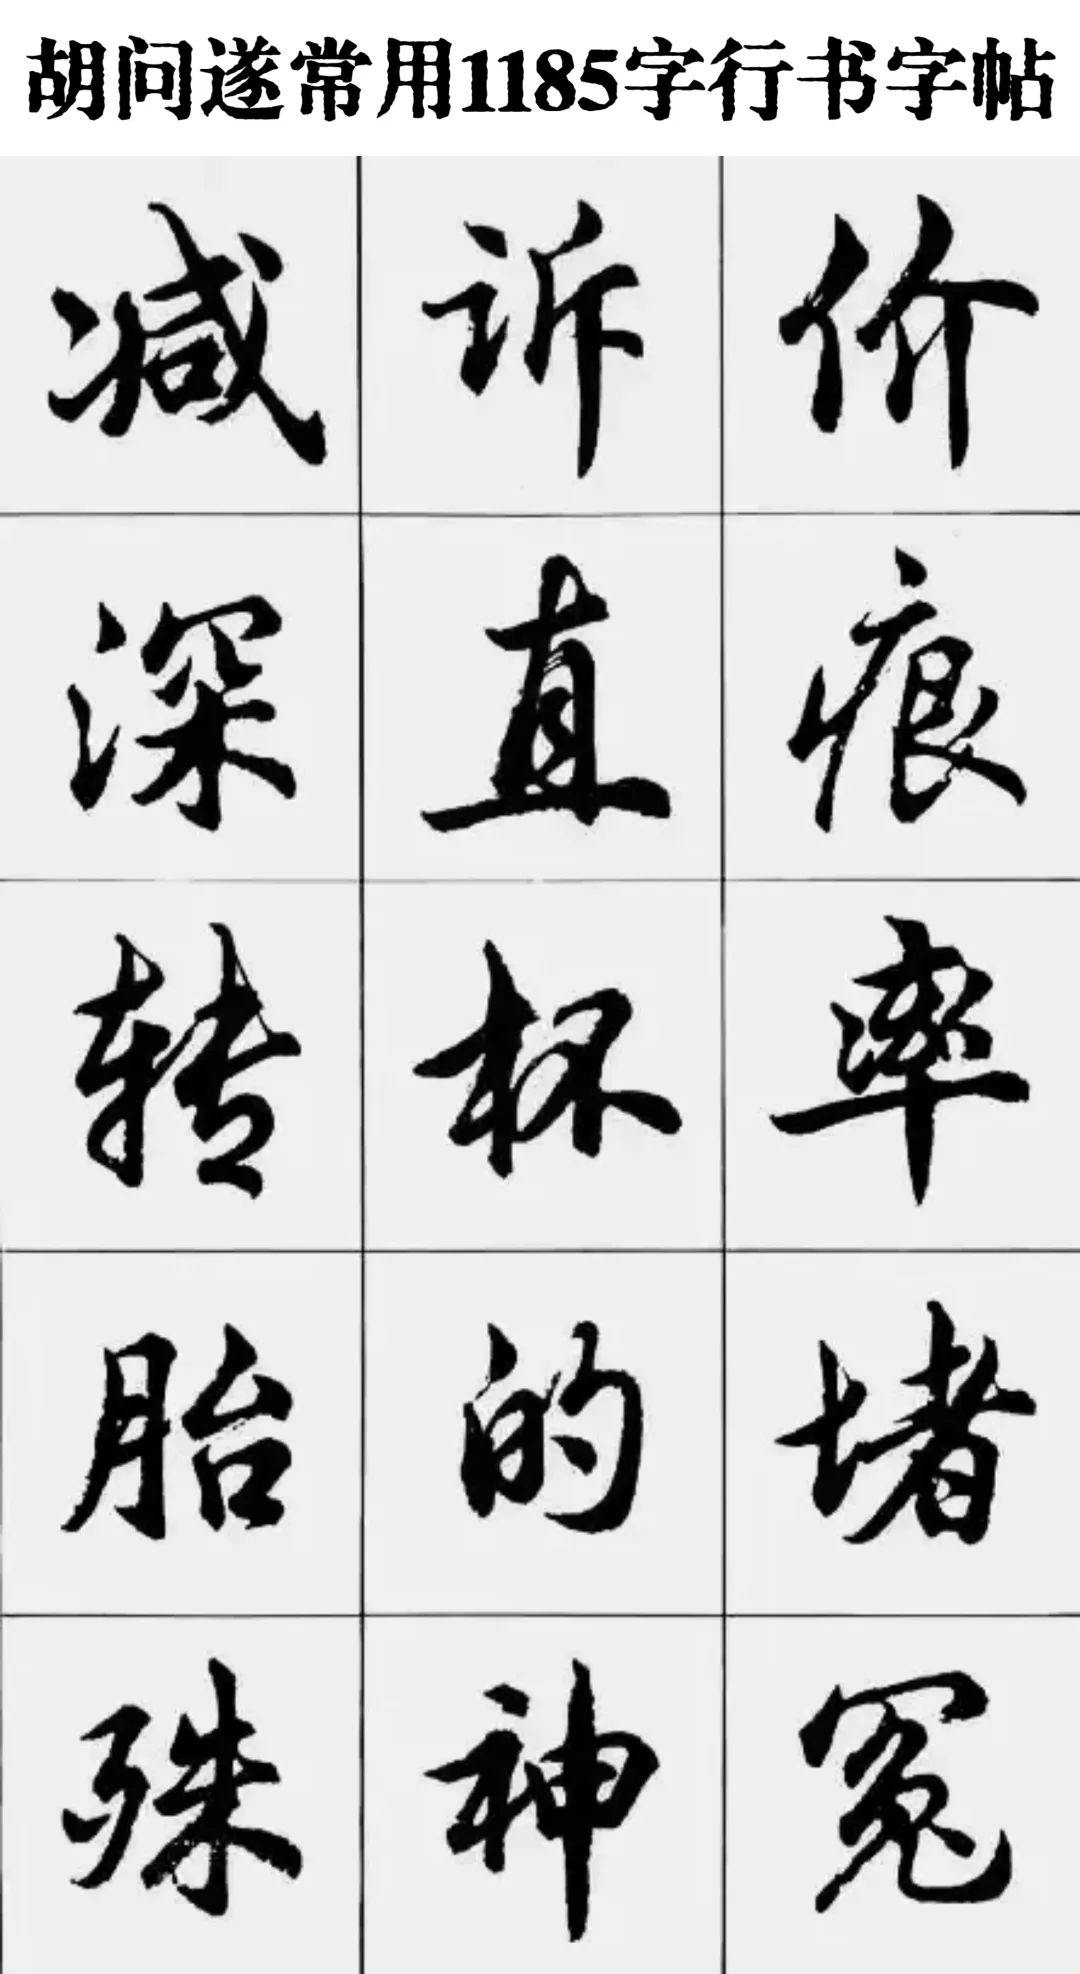 胡问遂常用1185字行书字帖
减诉价
深直痕
转杯率
胎的堵
殊神冤